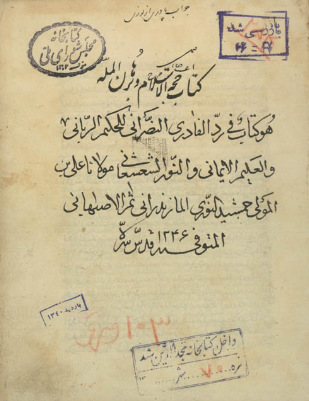 جواب پادری از نوری
کتابخانه
مجلس شورای ملی
بازرسی شد
۳۶ - ۳۷
کتاب حجة الاسلام و برهان الملة
هو کتاب فی رد الفادری النصرانی للحکیم الربانی
والعلیم الایمانی والنور الشعشعانی مولانا علی بن
المولی جمشید النوری المازندرانی ثم الاصبهانی
المتوفی سنه ۱۲۴۶ قدس سره
بازدید ۱۳۴۰
داخل کتابخانه مجلد آ شد
نمره